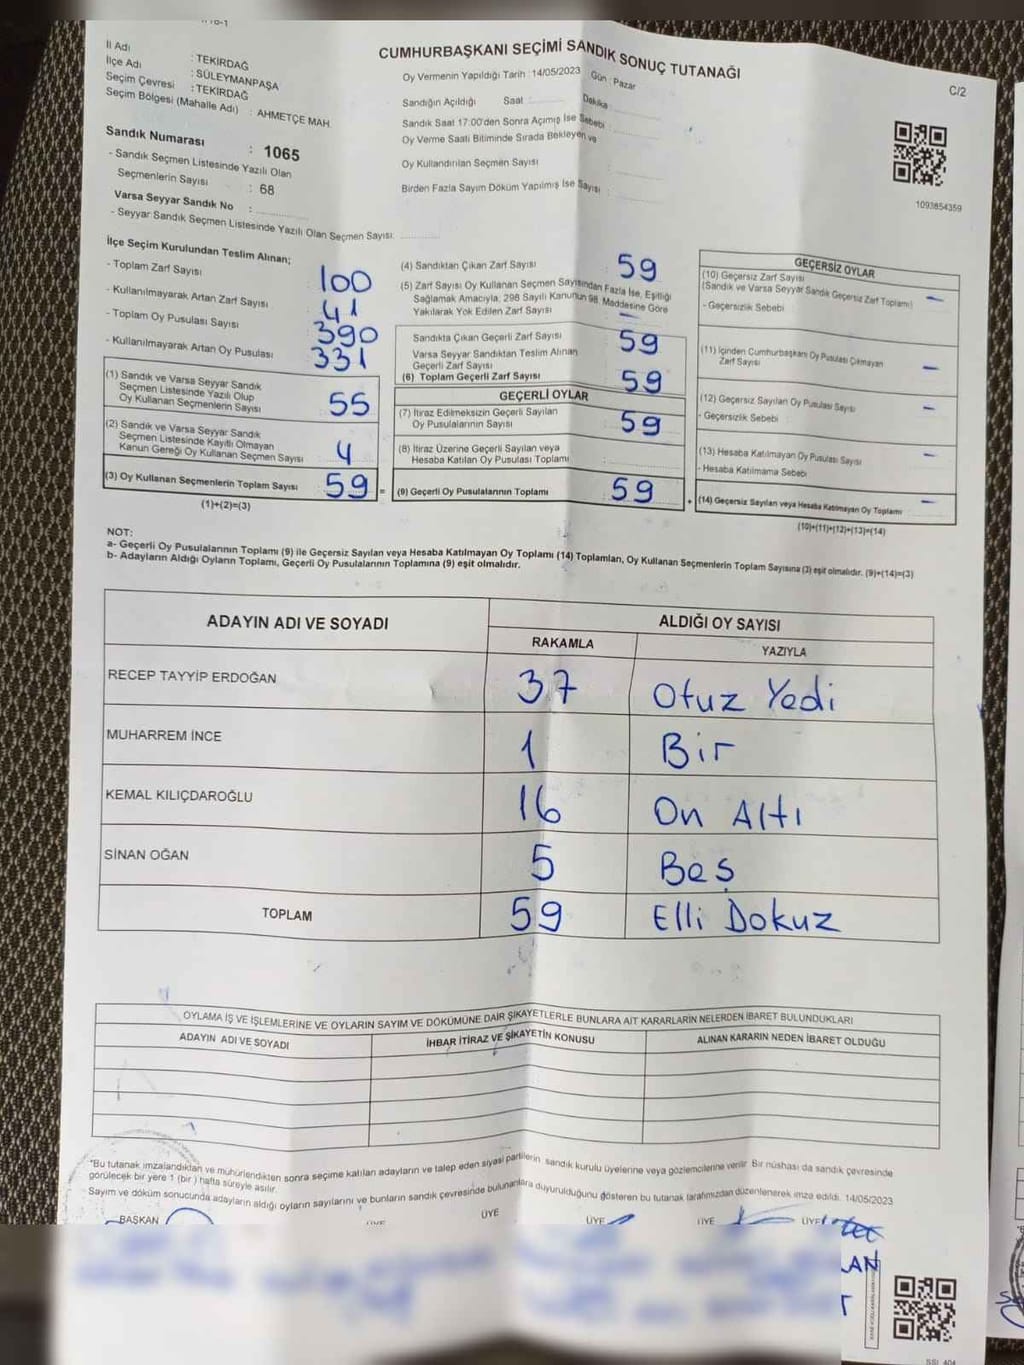 CUMHURBAŞKANI SEÇİMİ SANDIK SONUÇ TUTANAĞI
C/2
İl Adı : TEKİRDAĞ
İlçe Adı : SÜLEYMANPAŞA
Seçim Çevresi : TEKİRDAĞ
Seçim Bölgesi (Mahalle Adı) : AHMETÇE MAH.
Sandık Numarası : 1065
- Sandık Seçmen Listesinde Yazılı Olan
Seçmenlerin Sayısı : 68
Varsa Seyyar Sandık No :
- Seyyar Sandık Seçmen Listesinde Yazılı Olan Seçmen Sayısı:
Oy Vermenin Yapıldığı Tarih : 14/05/2023 Gün : Pazar
Sandığın Açıldığı Saat Dakika
Sandık Saat 17:00'den Sonra Açılmış İse Sebebi :
Oy Verme Saati Bitiminde Sırada Bekleyen ve
Oy Kullandırılan Seçmen Sayısı
Birden Fazla Sayım Döküm Yapılmış İse Sayısı :
1093854359
İlçe Seçim Kurulundan Teslim Alınan;
- Toplam Zarf Sayısı 100
- Kullanılmayarak Artan Zarf Sayısı 41
- Toplam Oy Pusulası Sayısı 390
- Kullanılmayarak Artan Oy Pusulası 331
(1) Sandık ve Varsa Seyyar Sandık
Seçmen Listesinde Yazılı Olup
Oy Kullanan Seçmenlerin Sayısı 55
(2) Sandık ve Varsa Seyyar Sandık
Seçmen Listesinde Kayıtlı Olmayan
Kanun Gereği Oy Kullanan Seçmen Sayısı 4
(3) Oy Kullanan Seçmenlerin Toplam Sayısı 59 =
(1)+(2)=(3)
(4) Sandıktan Çıkan Zarf Sayısı 59
(5) Zarf Sayısı Oy Kullanan Seçmen Sayısından Fazla İse, Eşitliği
Sağlamak Amacıyla, 298 Sayılı Kanunun 98. Maddesine Göre
Yakılarak Yok Edilen Zarf Sayısı —
Sandıkta Çıkan Geçerli Zarf Sayısı 59
Varsa Seyyar Sandıktan Teslim Alınan
Geçerli Zarf Sayısı
(6) Toplam Geçerli Zarf Sayısı 59
GEÇERLİ OYLAR
(7) İtiraz Edilmeksizin Geçerli Sayılan
Oy Pusulalarının Sayısı 59
(8) İtiraz Üzerine Geçerli Sayılan veya
Hesaba Katılan Oy Pusulası Toplamı
(9) Geçerli Oy Pusulalarının Toplamı 59 +
GEÇERSİZ OYLAR
(10) Geçersiz Zarf Sayısı
(Sandık ve Varsa Seyyar Sandık Geçersiz Zarf Toplamı) —
- Geçersizlik Sebebi
(11) İçinden Cumhurbaşkanı Oy Pusulası Çıkmayan
Zarf Sayısı —
(12) Geçersiz Sayılan Oy Pusulası Sayısı —
- Geçersizlik Sebebi :
(13) Hesaba Katılmayan Oy Pusulası Sayısı —
- Hesaba Katılmama Sebebi
(14) Geçersiz Sayılan veya Hesaba Katılmayan Oy Toplamı —
(10)+(11)+(12)+(13)=(14)
NOT:
a- Geçerli Oy Pusulalarının Toplamı (9) ile Geçersiz Sayılan veya Hesaba Katılmayan Oy Toplamı (14) Toplamları, Oy Kullanan Seçmenlerin Toplam Sayısına (3) eşit olmalıdır. (9)+(14)=(3)
b- Adayların Aldığı Oyların Toplamı, Geçerli Oy Pusulalarının Toplamına (9) eşit olmalıdır.
ADAYIN ADI VE SOYADI ALDIĞI OY SAYISI
RAKAMLA YAZIYLA
RECEP TAYYİP ERDOĞAN 37 Otuz Yedi
MUHARREM İNCE 1 Bir
KEMAL KILIÇDAROĞLU 16 On Altı
SİNAN OĞAN 5 Beş
TOPLAM 59 Elli Dokuz
OYLAMA İŞ VE İŞLEMLERİNE VE OYLARIN SAYIM VE DÖKÜMÜNE DAİR ŞİKAYETLERLE BUNLARA AİT KARARLARIN NELERDEN İBARET BULUNDUKLARI
ADAYIN ADI VE SOYADI İHBAR İTİRAZ VE ŞİKAYETİN KONUSU ALINAN KARARIN NEDEN İBARET OLDUĞU
*Bu tutanak imzalandıktan ve mühürlendikten sonra seçime katılan adayların ve talep eden siyasi partilerin sandık kurulu üyelerine veya gözlemcilerine verilir. Bir nüshası da sandık çevresinde
görülecek bir yere 1 (bir) hafta süreyle asılır.
Sayım ve döküm sonucunda adayların aldığı oyların sayılarını ve bunların sandık çevresinde bulunanlara duyurulduğunu gösteren bu tutanak tarafımızdan düzenlenerek imza edildi. 14/05/2023
BAŞKAN ÜYE ÜYE ÜYE ÜYE ÜYE